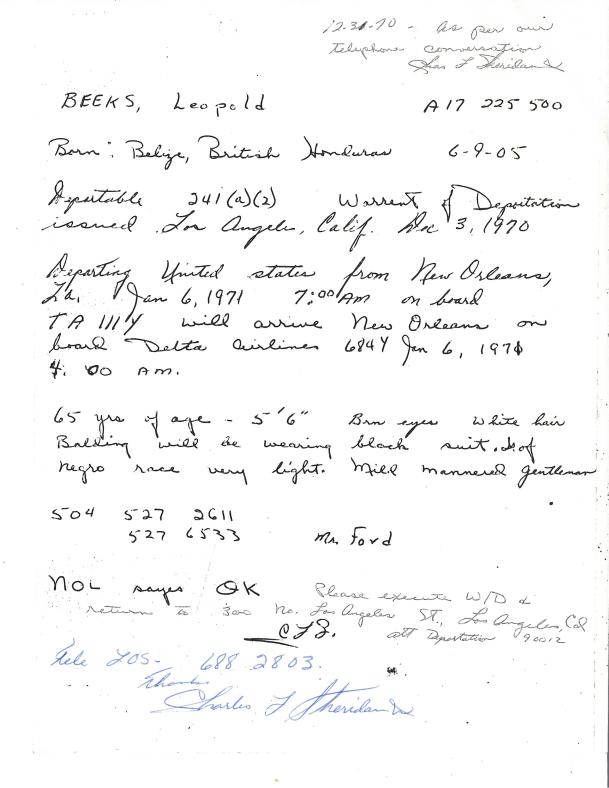 12-31-70 - as per our
telephone conversation
Chas F Sheridan
BEEKS, Leopold A17 225 500
Born: Belize, British Honduras 6-9-05
Deportable 241(a)(2) Warrent of Deportation
issued Los Angeles, Calif. Dec 3, 1970
Departing United states from New Orleans,
La, Jan 6, 1971 7:00 AM on board
TA 111Y will arrive New Orleans on
board Delta airlines 684Y Jan 6, 1971
4:00 AM.
65 yrs of age - 5'6" Brn eyes White hair
Balding will be wearing black suit. Is of
negro race very light. Mild mannered gentleman
504 527 2611
527 6533 Mr. Ford
NOL sayes OK Please execute W/D &
return to 300 No. Los Angeles St., Los Angeles, Cal
CFS. att Deportation 90012
Tele LOS- 688 2803.
Thanks
Charles F Sheridan